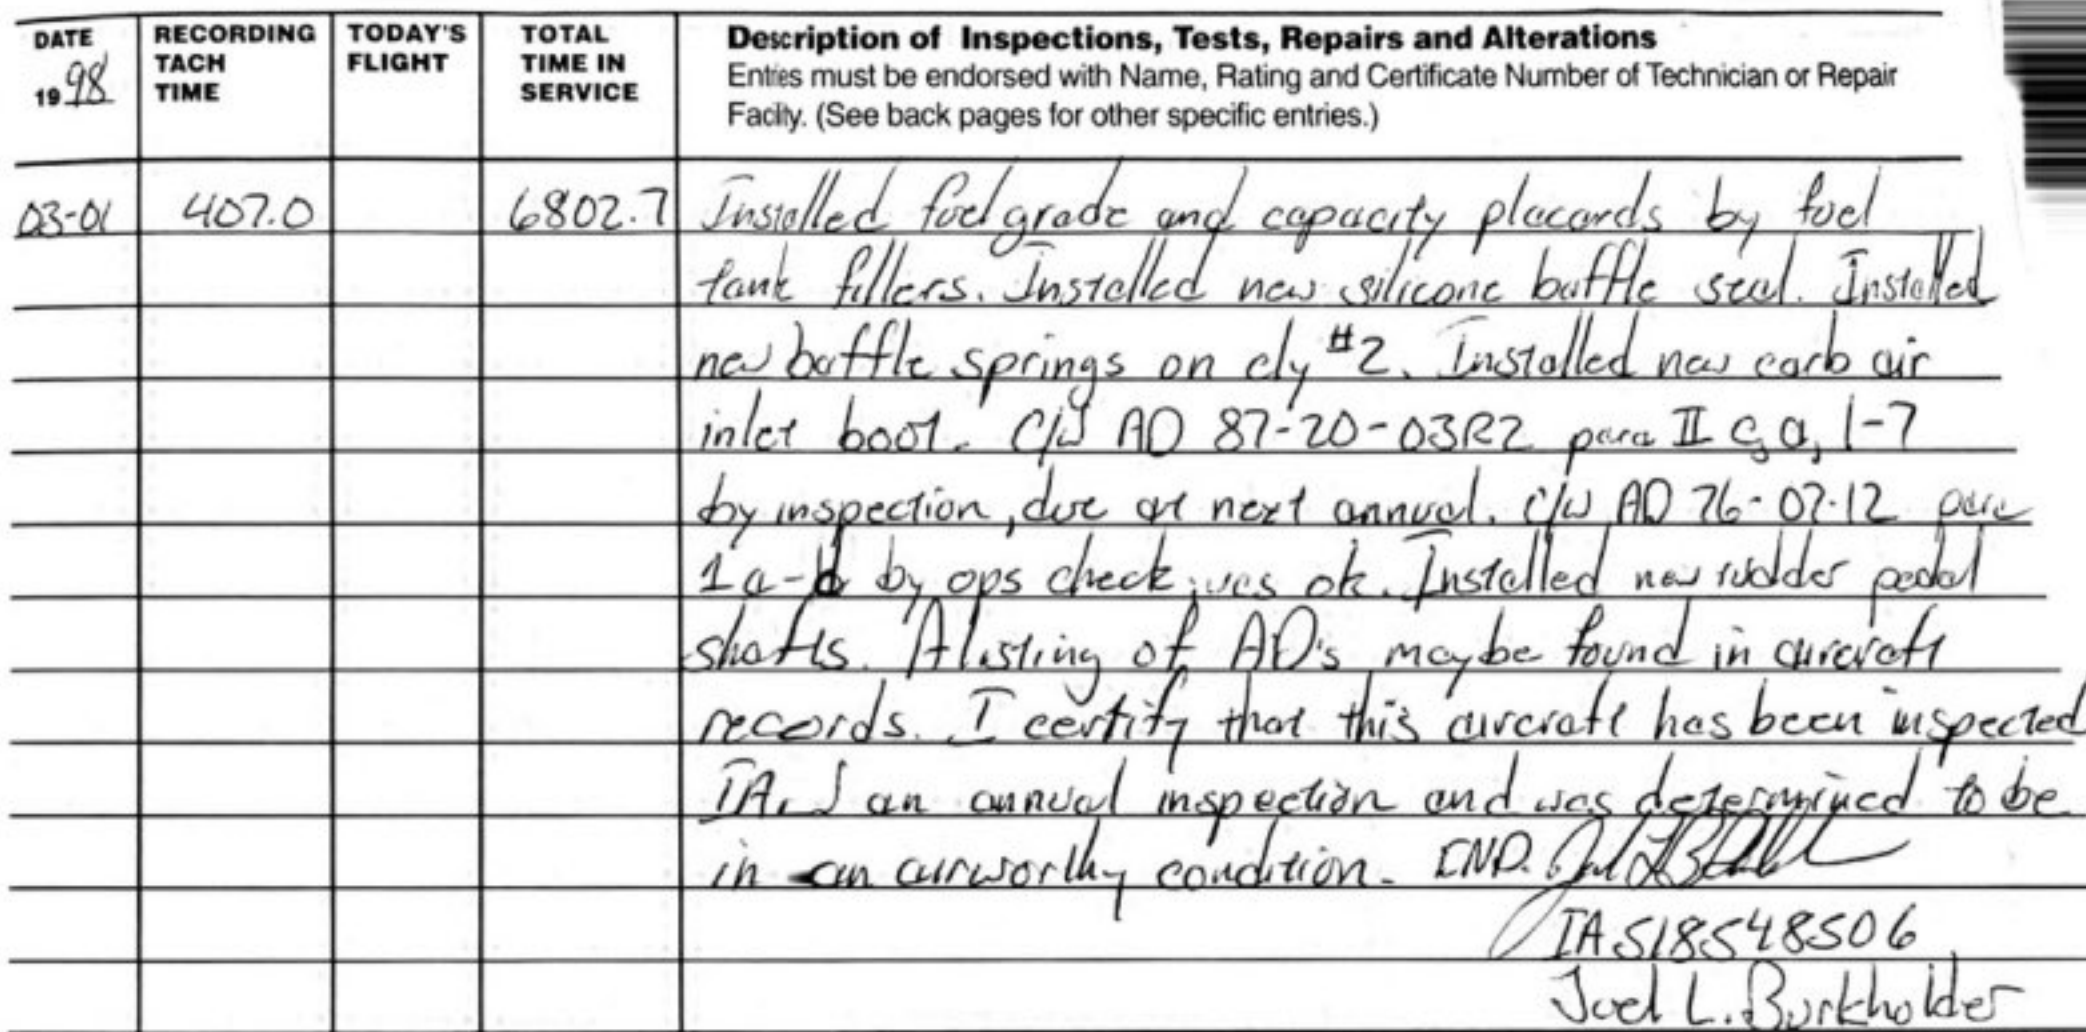 DATE
19 98
RECORDING
TACH
TIME
TODAY'S
FLIGHT
TOTAL
TIME IN
SERVICE
Description of Inspections, Tests, Repairs and Alterations
Entries must be endorsed with Name, Rating and Certificate Number of Technician or Repair
Facility. (See back pages for other specific entries.)
03-01 407.0 6802.7 Installed fuel grade and capacity placards by fuel
tank fillers. Installed new silicone baffle seal. Installed
new baffle springs on cly #2. Installed new carb air
inlet boot. C/W AD 87-20-03R2 para II a, 1-7
by inspection, due at next annual. C/W AD 76-07-12 para
1a-b by ops check, was ok. Installed new rudder pedal
shafts. A listing of AD's maybe found in aircraft
records. I certify that this aircraft has been inspected
I.A.W an annual inspection and was determined to be
in an airworthy condition. END.
IA 518548506
Joel L. Burkholder